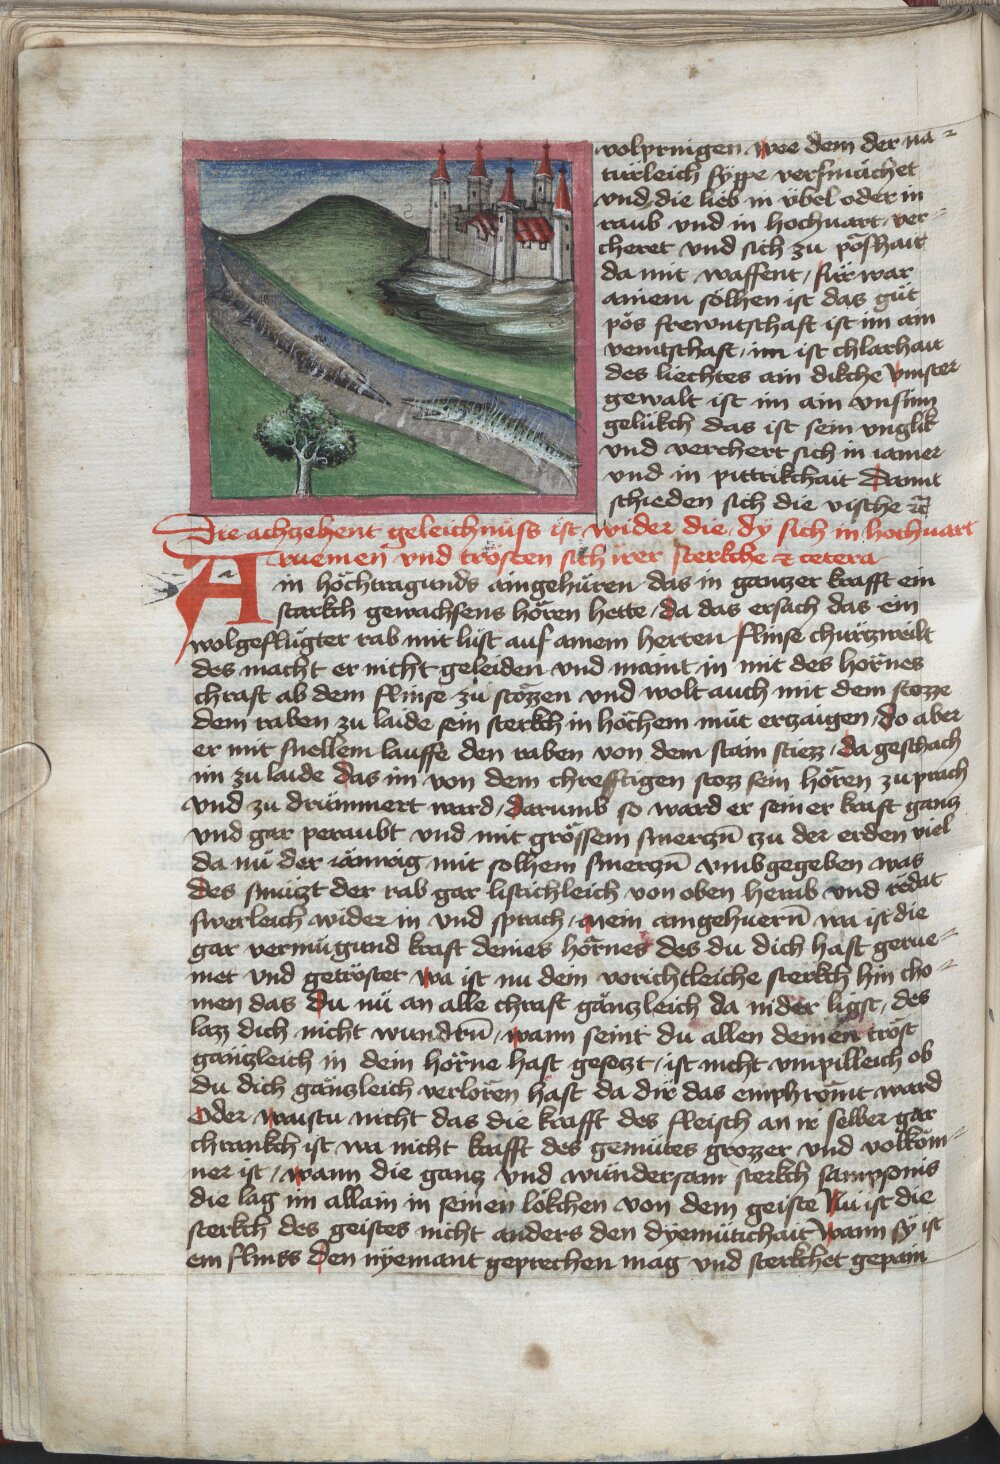 volpringen wee dem der na-
türleich sÿppe versmächet
vnd die lieb in v̈bel oder in
raub vnd in hochuart ver-
cheret vnd sich zu pöshait
da mit waffent / für war
ainem sölhen ist das güt
pös frewntschaft ist im ain
veintschaft / im ist chlarhait
des liechtes ain dikche vinster
gewalt ist im ain vnsinn
gelükch das ist sein vnglük
vnd verchert sich in iamer
vnd in pittrikchait Damit
schieden sich die vische ꝛc̃
Die achzehent geleichnüss ist wider die / dÿ sich in hochuart
rüemen vnd trösten sich irer sterkche ⁊ cetera
Ain höchtragunds aingehüren das in ganzer krafft ein
starkch gewachsens hören hette / da das ersach das ein
wolgeflügter rab mit lust auf ainem herten flinse churzweilt
des macht er nicht geleiden vnd maint in mit des hörnes
chraft ab dem flinse zü stözzen vnd wolt auch mit dem stozze
dem raben zu laide sein sterkch in höchem müt erzaigen / do aber
er mit snellem lauffe den raben von dem stain stiezz / da geschach
im zu laide das im von dem chrefftigen stozz sein hören zuprach
vnd zu drümmert ward / darumb so ward er seiner kraft ganz
vnd gar peraubt vnd mit grössem smerzn̄ zu der erden viel
da nü der ainürig mit solhem smerzn̄ vmbgegeben was
des smüzt der rab gar listichleich von oben herab vnd rëdat
swerleich wider in vnd sprach / mein aingehuern̄ wa ist die
gar vermügund kraft deines hörnes des du dich hast gerue-
met vnd getröstet wa ist nu dein vorichtleiche sterkch hin cho-
men das du nü an alle chraft gänzleich da nider ligst / des
lazz dich nicht wundern̄ / wann seint du allen deinen tröst
gänzleich in dein hörne hast gesezt / ist nicht vnpilleich ob
du dich gänzleich verloren hast da dir das emphrömt ward
Oder waistu nicht das die krafft des fleisch an ir selber gar
chrankch ist wa nicht krafft des gemütes grözzer vnd volköm-
ner ist / wann die ganz vnd wundersam sterkch sampsonis
die lag im allain in seinen lökchen von dem geiste Nu ist die
sterkch des geistes nicht anders den dÿemütichait wann sÿ ist
ein flinss den nÿemant geprechen mag vnd sterkchet gepain